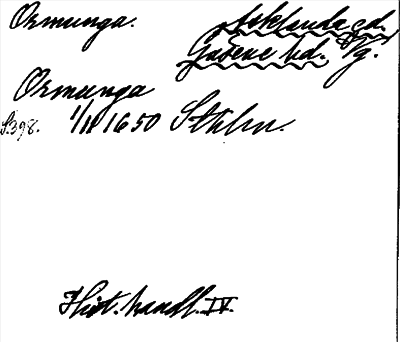 Ormunga. Asklanda sd.
Gäsene hd. Vg.
Ormunga
S. 398. 1/11 1650 Sthlm.
Hist. handl. IV.